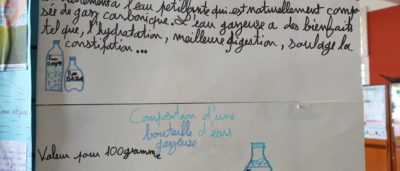 l'eau petillante qui est naturellement compo
sée de gaz carbonique. L'eau gazeuse a des bienfaits
tel que, l'hydratation, meilleure digestion, soulage la
constipation...
Eau
Composition d'une
bouteille d'eau
gazeuse
Valeur pour 100 gramme